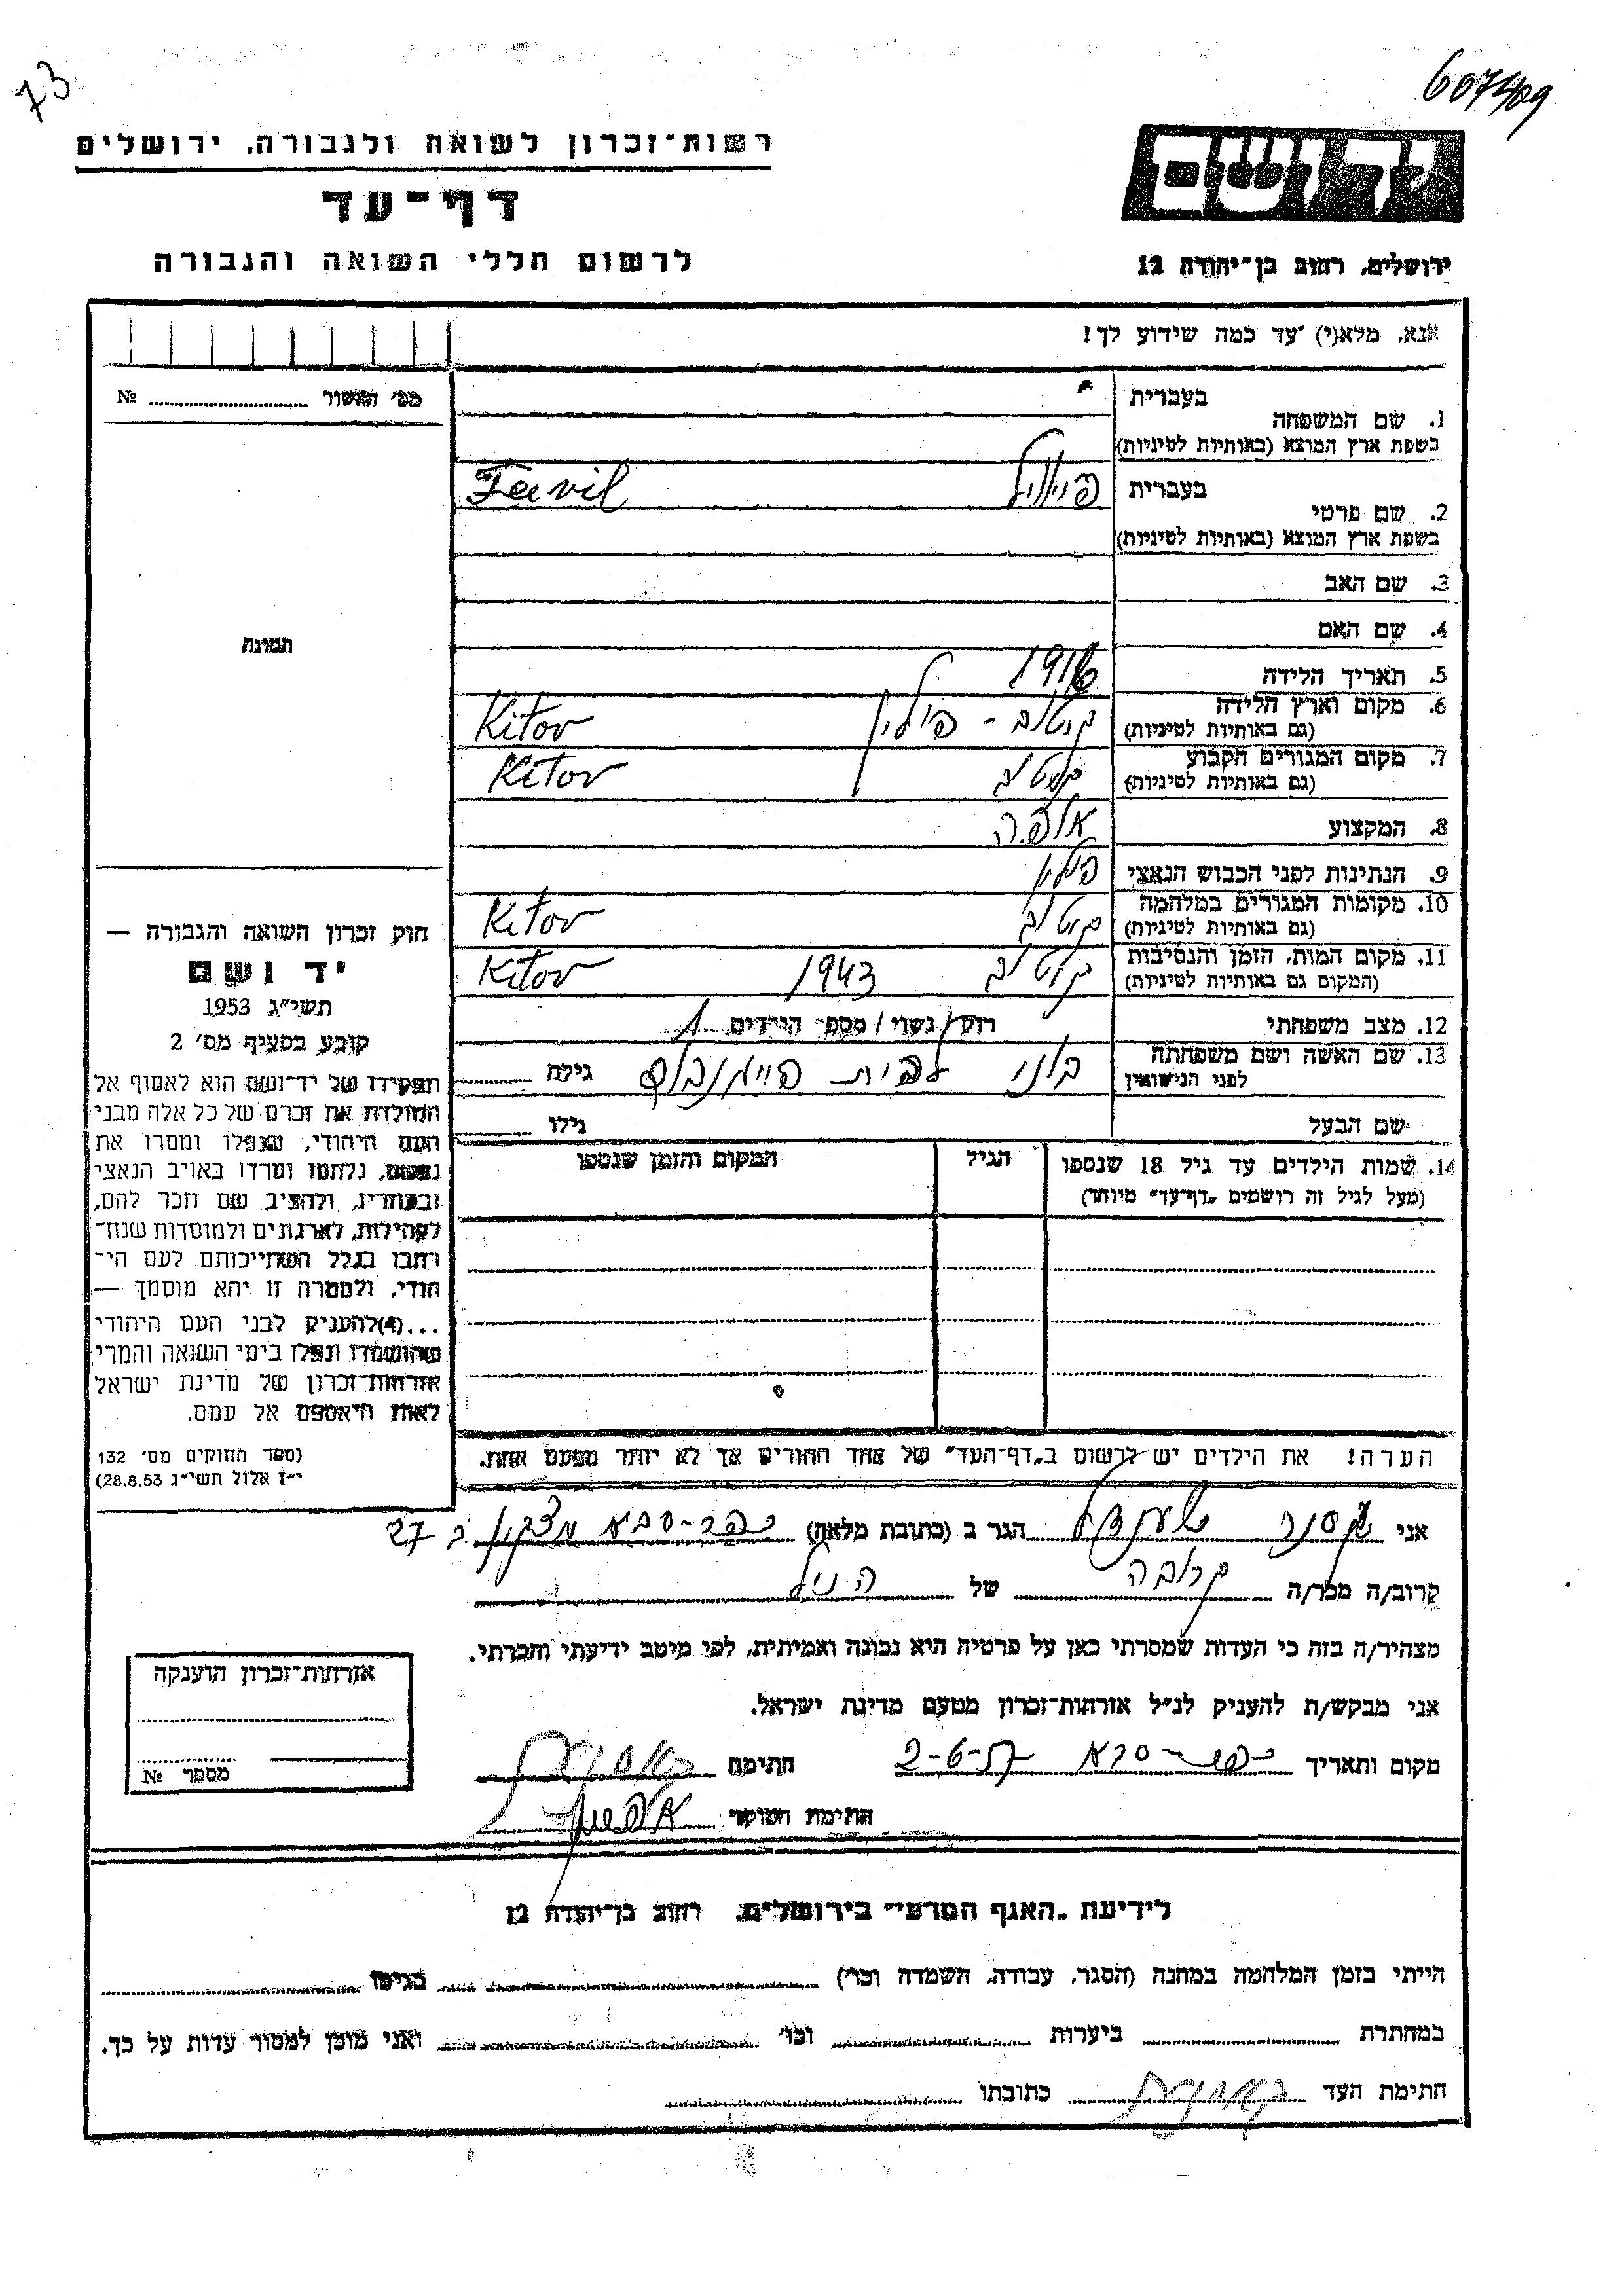 73
607409
רשות־זכרון לשואה ולגבורה, ירושלים
יד ושם
דף־עד
לרשום חללי השואה והגבורה
ירושלים, רחוב בן־יהודה 12
אנא, מלא(י) עד כמה שידוע לך!
מס' תושור № ........
תמונה
1. שם המשפחה בעברית
בשפת ארץ המוצא (באותיות לטיניות)
2. שם פרטי בעברית פייוויל Favil
בשפת ארץ המוצא (באותיות לטיניות)
3. שם האב
4. שם האם
5. תאריך הלידה 1916
6. מקום וארץ הלידה קוטוב - פולין Kitov
(גם באותיות לטיניות)
7. מקום המגורים הקבוע קוטוב Kitov
(גם באותיות לטיניות)
8. המקצוע אופה
9. הנתינות לפני הכבוש הנאצי פולין
10. מקומות המגורים במלחמה קוטוב Kitov
(גם באותיות לטיניות)
11. מקום המות, הזמן והנסיבות קוטוב 1943 Kitov
(המקום גם באותיות לטיניות)
12. מצב משפחתי רוק/ נשוי / מספר הילדים 1
13. שם האשה ושם משפחתה לפני הנישואין לבית גילה ........
שם הבעל גילו ........
14. שמות הילדים עד גיל 18 שנספו הגיל המקום והזמן שנספו
(מעל לגיל זה רושמים "דף־עד" מיוחד)
הערה! את הילדים יש לרשום ב"דף־העד" של אחד ההורים אך לא יותר מפעם אחת.
חוק זכרון השואה והגבורה —
יד ושם
תשי"ג 1953
קובע בסעיף מס' 2
תפקידו של יד־ושם הוא לאסוף אל
המולדת את זכרם של כל אלה מבני
העם היהודי, שנפלו ומסרו את
נפשם, נלחמו ומרדו באויב הנאצי
ובעוזריו, ולהציב שם וזכר להם,
לקהילות, לארגונים ולמוסדות שנח־
רבו בגלל השתייכותם לעם הי־
הודי, ולמטרה זו יהא מוסמך —
...(4)להעניק לבני העם היהודי
שהושמדו ונפלו בימי השואה והמרי
אזרחות־זכרון של מדינת ישראל
לאות היאספם אל עמם.
(ספר החוקים מס' 132
י"ז אלול תשי"ג 28.8.53)
אני הגר ב (כתובת מלאה) כפר-סבא 27
קרוב/ה מכר/ה קרובה של הנ"ל
מצהיר/ה בזה כי העדות שמסרתי כאן על פרטיה היא נכונה ואמיתית, לפי מיטב ידיעתי והכרתי.
אני מבקש/ת להעניק לנ"ל אזרחות־זכרון מטעם מדינת ישראל.
מקום ותאריך כפר-סבא 2-6-57 חתימה
חתימת הפוקד
אזרחות־זכרון הוענקה
מספר №
לידיעת "האגף המדעי" בירושלים, רחוב בן־יהודה 12
הייתי בזמן המלחמה במחנה (הסגר, עבודה, השמדה וכו') ........ בגיטו ........
במחתרת ........ ביערות ........ וכו' ........ ואני מוכן למסור עדות על כך.
חתימת העד כתובתו ........